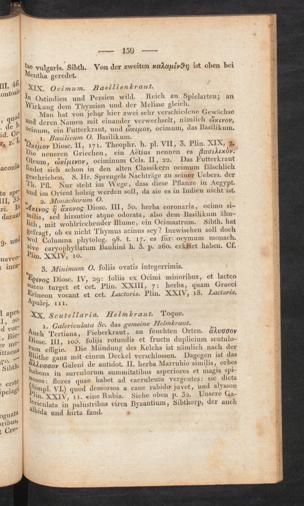 — 159 —
tae vulgaris. Sibth. Von der zweiten καλαμίνθη ist oben bei
Mentha geredet.
XIX. Ocimum. Basilienkraut.
In Ostindien und Persien wild. Reich an Spielarten; an
Wirkung dem Thymian und der Melisse gleich.
Man hat von jeher hier zwei sehr verschiedene Gewächse
und deren Namen mit einander verwechselt, nämlich ὤκινον,
ocinum, ein Futterkraut, und ὤκιμον, ocimum, das Basilikum.
1. Basilicum O. Basilikum.
Ὤκιμον Diosc. II, 171. Theophr. h. pl. VII, 3. Plin. XIX, 7.
Die neueren Griechen, ein Aëtius nennen es βασιλικόν.
Oleum, ociminum Cels. II, 22. Das Futterkraut
findet sich schon in den alten Classikern ocimum fälschlich
geschrieben. S. Hr. Sprengels Nachträge zu seiner Uebers. der
Th. Pfl. Nur steht im Wege, dass diese Pflanze in Aegypt.
und im Orient holzig werden soll, da sie es in Indien nicht ist.
2. Monachorum O.
Ἄκινος ἢ ὤκινος Diosc. III, 50. herba coronaris, ocimo si-
milis, sed hirsutior atque odorata, also dem Basilikum ähn-
lich, mit wohlriechender Blume, ein Ocimastrum. Sibth. hat
gefragt, ob es nicht Thymus acinus sey? Inzwischen soll doch
nach Columna phytolog. 98. t. 17. es für ocymum monach.
sive caryophyllatum Bauhini h. 3. p. 260. erklärt haben. Cf.
Plin. XXIV, 10.
3. Minimum O. foliis ovatis integerrimis.
Ἔρινος Diosc. IV, 29: foliis ex Ocimi minoribus, et lacteo
succo turget et cet. Plin. XXIII, 7: herba, quam Graeci
Erineon vocant et cet. Lactoris. Plin. XXIV, 18. Lactoris,
Apulej. 111.
XX. Scutellaria. Helmkraut. Toque.
1. Galericulata Sc. das gemeine Helmkraut.
Auch Tertiana, Fieberkraut, an feuchten Orten. ἄλυσσον
Diosc. III, 105. foliis rotundis et fructu duplicium scutulo-
rum effigie. Die Mündung des Kelchs ist nämlich nach der
Blüthe ganz mit einem Deckel verschlossen. Dagegen ist das
ἄλυσσον Galeni de antidot. II. herba Marrubio similis, orbes
habens in surculorum summitatibus asperiores et magis spi-
nosos: flores quae habet ad caeruleum vergentes: sie dicta
(compl. VI.) quod demorsos a cane rabido juvet, und alysson
Plin. XXIV, 11. eine Rubia. Siehe oben p. 52. Unsere Ga-
lericulata in palustribus circa Byzantium, Sibthorp, der auch
albida und hirta fand.